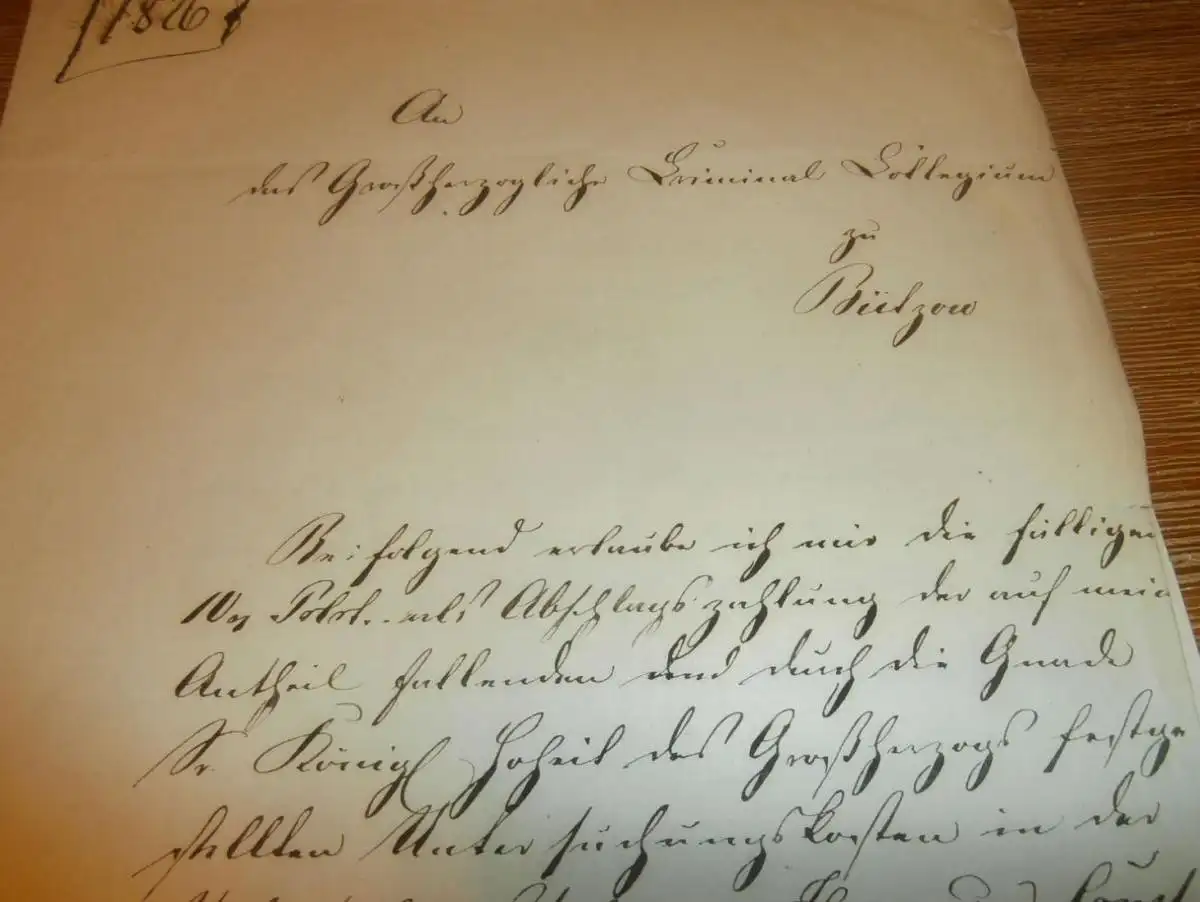 1826
An
das Großherzogliche Criminal Collegium
zu
Bützow
Beifolgend erlaube ich mir die fälligen
10 als Abschlagszahlung der auf mein
Antheil fallenden und durch die Gnade
Sr. Königl Hoheit des Großherzogs festge
stellten Untersuchungskosten in der